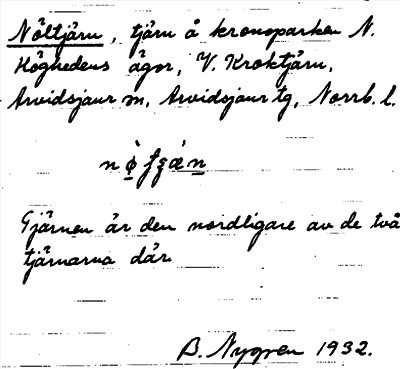 Nöltjärn, tjärn å kronoparken N.
Höghedens ägor, V. Kroktjärn,
Arvidsjaur sn, Arvidsjaur tg, Norrb. l.
Tjärnen är den nordligare av de två
tjärnarna där
B. Nygren 1932.